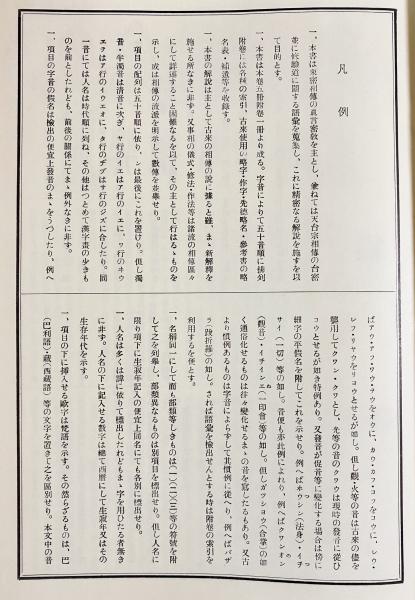 凡例
一、本書は東密相傳の眞言密敎を主とし、兼ねては天台宗相傳の台密
並に修驗道に關する語彙を蒐集し、これに精密なる解說を施すを以
て目的とす。
一、本書は本卷五冊附卷一冊より成る。字音によりて五十音順に排列し
附卷には各種の索引、古來使用の略字・作字・先德略名・參考書の略
名表・補遺等を收錄す。
一、本書の解說は主として古來の相傳の說に據ると雖、まゝ新解釋を
施せる所なきに非ず。又事相の儀式・修法・作法等は諸流の相傳區々
にして詳述すること困難なるを以て、その主として行はるゝものを
示し、或は相傳の流派を明示して數傳を並擧せり。
一、項目の配列は五十音順に依り、ンは最後にこれを置けり。但し濁
音・半濁音は淸音に次ぎ、ヤ行のイエはア行のイエに、ワ行のヰウ
ヱヲはア行のイウエオに、タ行のヂヅはサ行のジズに合したり。同
一音にては人名は時代順に列ね、その他はつとめて漢字畫の少きも
のを前としたれども、前後の關係にてまゝ例外なきに非ず。
一、項目の字音の假名は檢出の便宜上發音のまゝをうつしたり、例へ
ばアウ・アフ・ワウ・ヲウをオウに、カウ・カフ・コフをコウに、レウ・
レフ・リヤウをリョウとせるが如し。但し觀・火等の音は古來の儘を
襲用してクワン・クワとし、光等の音のクワウは現時の發音に從ひ
コウとせるが如き特例あり。又發音が促音等に變化する場合は傍に
細字の平假名を附してこれを示せり。例へばホウシン(法身)・イチ
サイ(一切)等の如し。音便も亦此例によれり、例へばクワンオン
(觀音)・イチインエ(一印會)等の如し。但しガツショウ(合掌)の如
く通俗化せるものは往々變化せるまゝの音を寫したるもあり。又古
より慣例あるものは字音によらずして其慣例に從へり、例へばバザ
ラ(跋折羅)の如し。されば語彙を檢出せんとする時は附卷の索引を
利用するを便とす。
一、名稱同一にして而も部類等しきものは(一)(二)(三)等の符號を附
して之を列擧し、部類異なるものは別項目を標出せり。但し人名に
限り項下に生寂年記入の便宜上同名にても各別に標出せり。
一、人名は多くは諱に依りて標出したれどもまゝ字を用ひたる者無き
に非ず。人名の下に記入せる數字は總て西曆にして生寂年又はその
生存年代を示す。
一、項目の下に揷入せる歐字は梵語を示す。その然らざるものは、巴
(巴利語)・藏(西藏語)等の文字を置きて之を區別せり。本文中の音